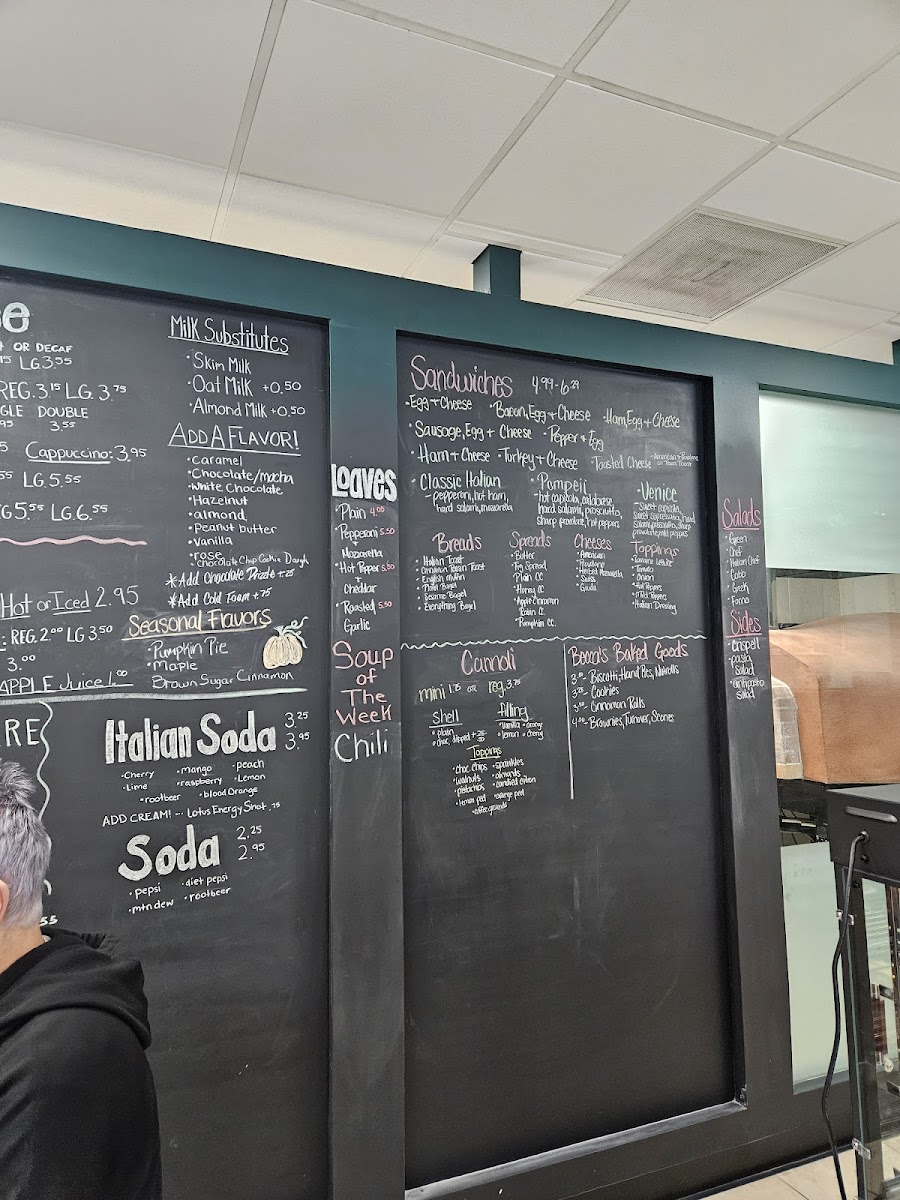 OR DECAF
LG 3.55
REG. 3.15 LG. 3.75
DOUBLE
3.55
Cappuccino: 3.95
LG 5.55
5.55 LG. 6.55
Hot or Iced 2.95
REG. 2.00 LG 3.50
3.00
APPLE Juice 1.00
Milk Substitutes
• Skim Milk
• Oat Milk +0.50
• Almond Milk +0.50
ADD A FLAVOR!
• Caramel
• Chocolate/mocha
• White Chocolate
• Hazelnut
• almond
• Peanut butter
• Vanilla
• rose
• Chocolate Chip Cookie Dough
*Add Chocolate Drizzle +.25
*Add Cold Foam +.75
Seasonal Flavors
• Pumpkin Pie
• Maple
Brown Sugar Cinnamon
Italian Soda 3.25
3.95
• Cherry • mango • peach
• Lime • raspberry • Lemon
• rootbeer • blood Orange
ADD CREAM! -- Lotus Energy Shot .75
Soda 2.25
2.95
• pepsi • diet pepsi
• mtn dew • rootbeer
Loaves
• Plain 4.00
• Pepperoni 5.50
+
Mozzarella
• Hot Pepper 5.50
+
Cheddar
• Roasted 5.50
Garlic
Soup
of
The
Week
Chili
Sandwiches 4.99-6.29
• Egg + Cheese • Bacon, Egg + Cheese • Ham, Egg + Cheese
• Sausage, Egg + Cheese • Pepper + Egg
• Ham + Cheese • Turkey + Cheese • Toasted Cheese
• Classic Italian
- pepperoni, hot ham,
hard salami, mozzarella
• Pompeii
- hot capicola, calabrese,
hard salami, prosciutto,
sharp provolone, hot peppers
• Venice
Breads
• Italian Toast
• Cinnamon Raisin Toast
• English Muffin
• Plain Bagel
• Sesame Bagel
• Everything Bagel
Spreads
• Butter
• Fig Spread
• Plain CC
• Honey CC
• Apple Cinnamon
Raisin CC
• Pumpkin CC
Cheeses
• American
• Provolone
• Herbed Mozzarella
• Swiss
• Gouda
Toppings
• Romaine Lettuce
• Tomato
• Onion
• Hot Peppers
• Italian Dressing
Cannoli
mini 1.75 or reg. 3.75
Shell
• plain
• choc. dipped +.25
filling
• vanilla • orange
• lemon • cherry
Toppings
• choc chips • sprinkles
• walnuts • almonds
• pistachios • candied citron
• lemon peel • orange peel
• coffee grounds
Becca's Baked Goods
Biscotti, Hand Pies, Nutrolls
Cookies
Cinnamon Rolls
Brownies, Turnover, Scones
Salads
• Green
• Chef
• Italian Chef
• Cobb
• Greek
• Forno
Sides
• Crispelli
• pasta
salad
• antipasto
salad